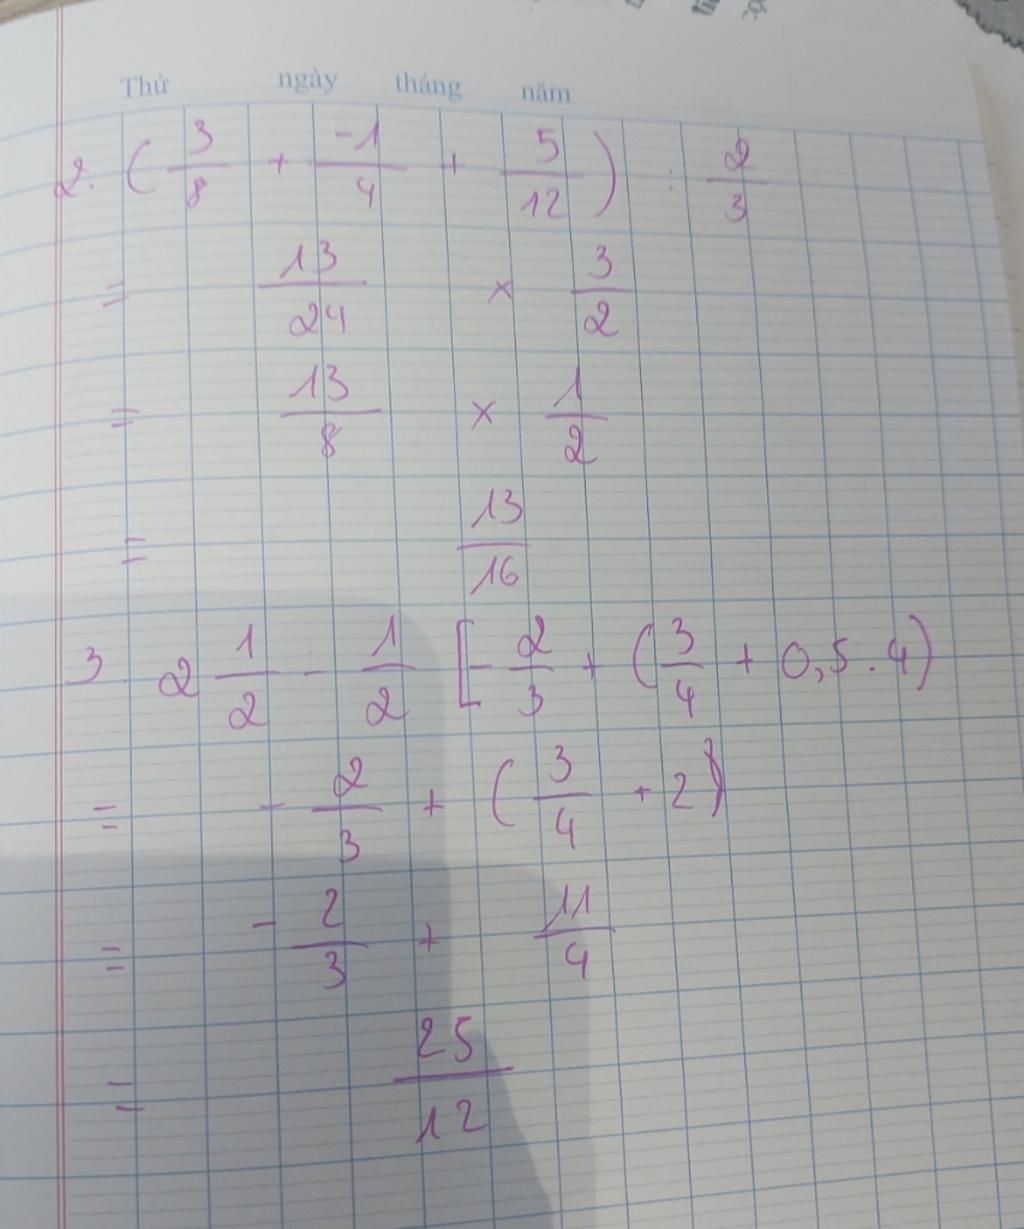 Thứ ngày tháng năm
2. ( 3/8 + -1/4 + 5/12 ) : 2/3
= 13/24 × 3/2
= 13/8 × 1/2
= 13/16
3 2 1/2 - 1/2 [ - 2/3 + ( 3/4 + 0,5 . 4 )
= - 2/3 + ( 3/4 + 2 )
= - 2/3 + 11/4
= 25/12